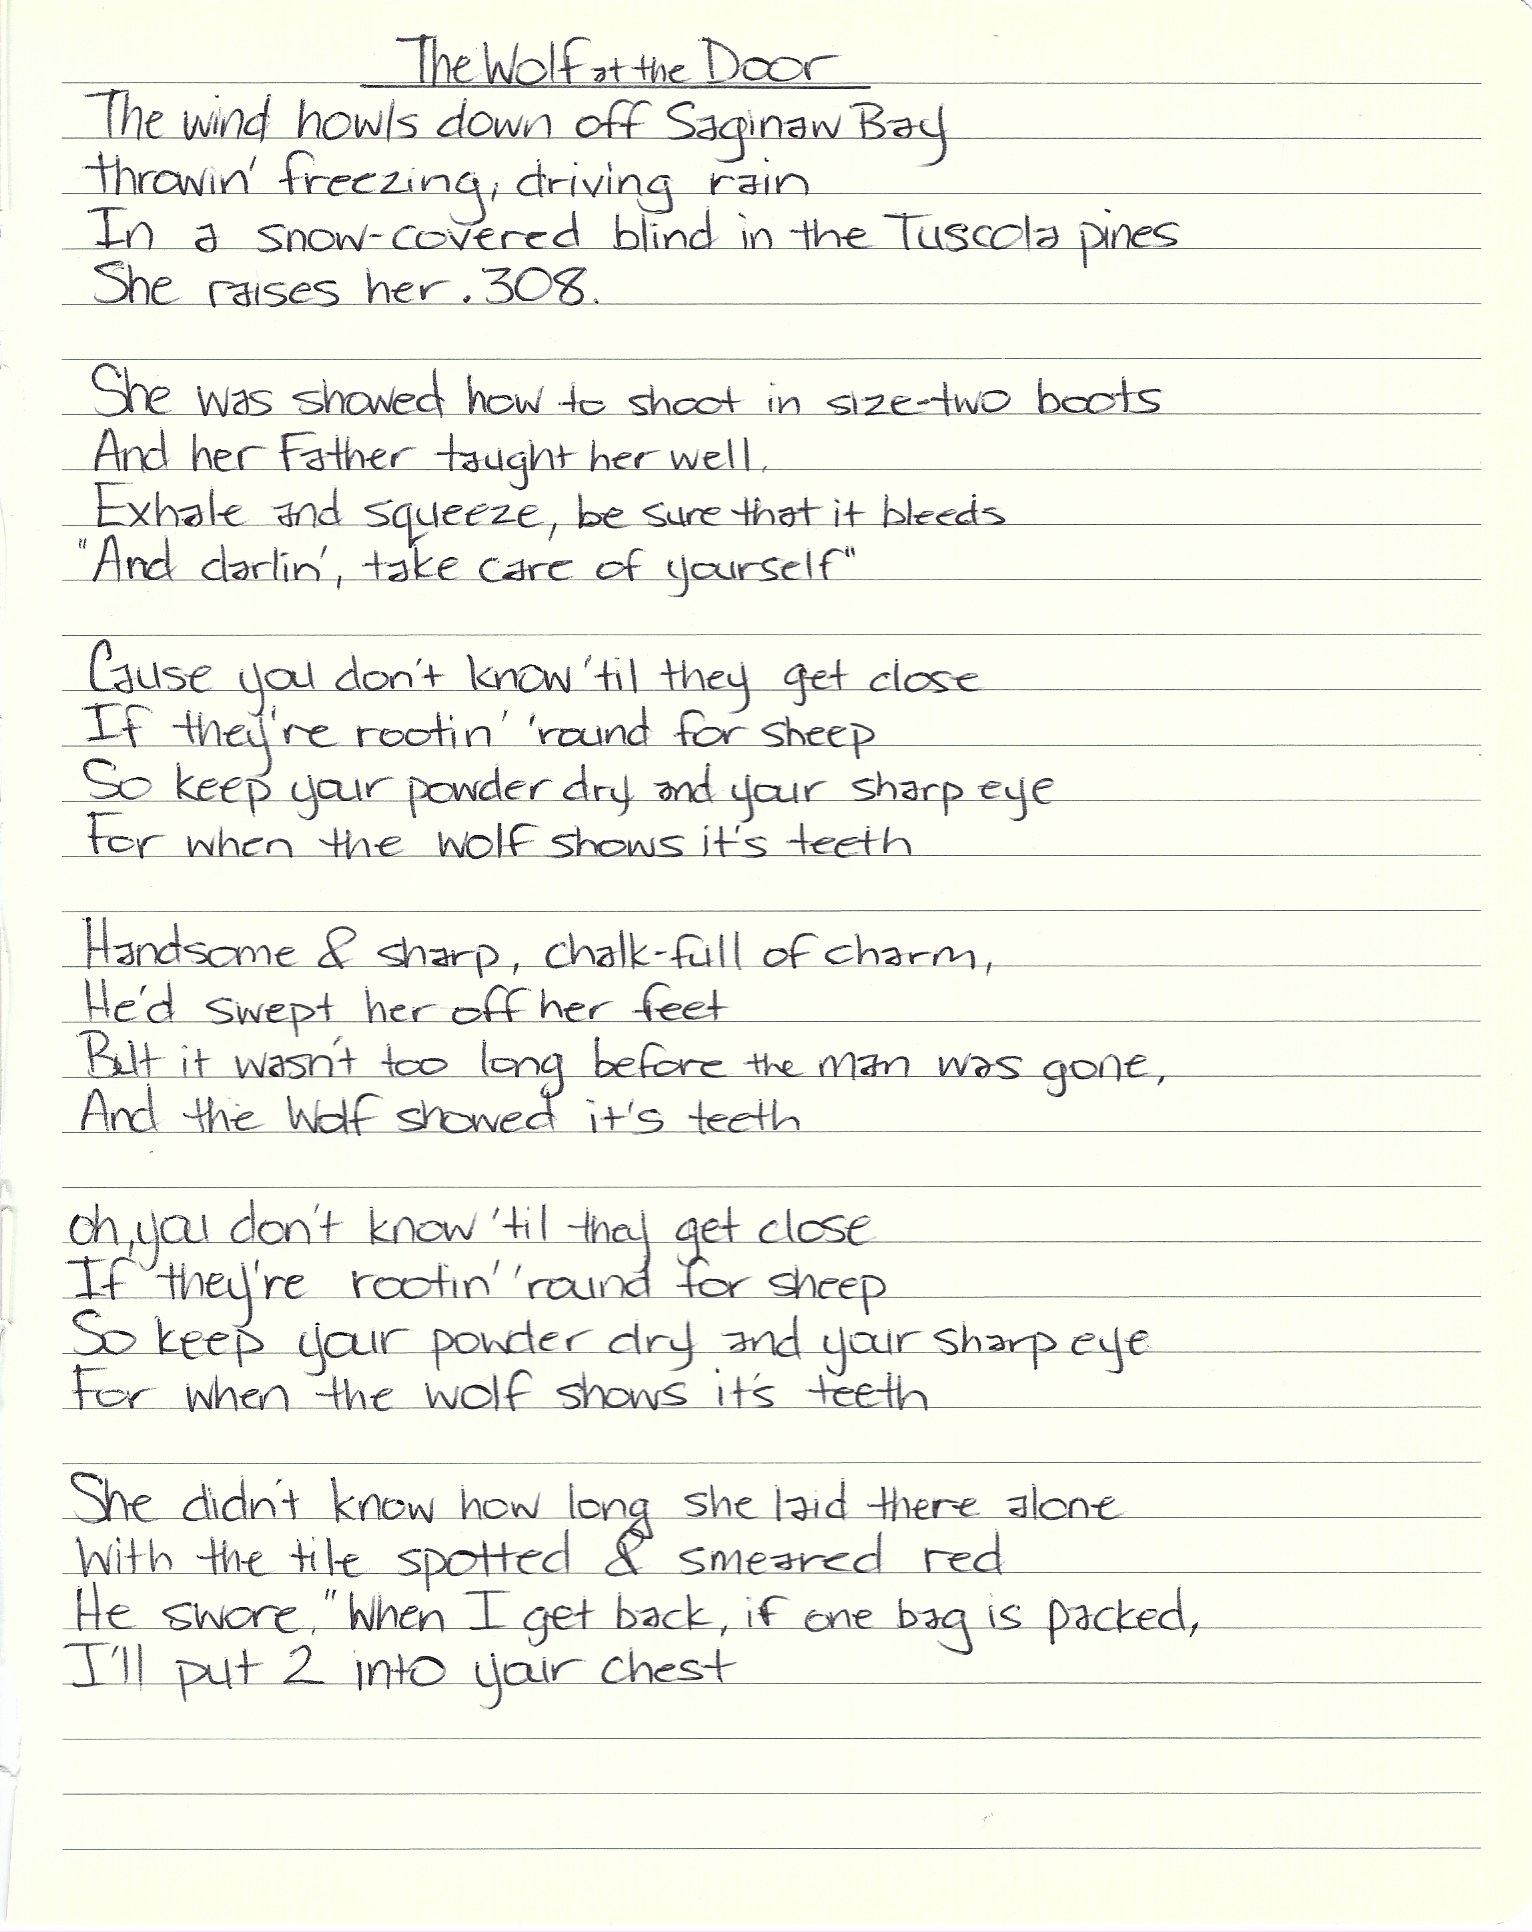 The Wolf at the Door
The wind howls down off Saginaw Bay
throwin' freezing, driving rain
In a snow-covered blind in the Tuscola pines
She raises her .308.
She was showed how to shoot in size-two boots
And her Father taught her well.
Exhale and squeeze, be sure that it bleeds
"And darlin', take care of yourself"
Cause you don't know 'til they get close
If they're rootin' 'round for sheep
So keep your powder dry and your sharp eye
For when the wolf shows it's teeth
Handsome & sharp, chalk-full of charm,
He'd swept her off her feet
But it wasn't too long before the man was gone,
And the Wolf showed it's teeth
oh, you don't know 'til they get close
If they're rootin' 'round for sheep
So keep your powder dry and your sharp eye
For when the wolf shows it's teeth
She didn't know how long she laid there alone
With the tile spotted & smeared red
He swore, "When I get back, if one bag is packed,
I'll put 2 into your chest